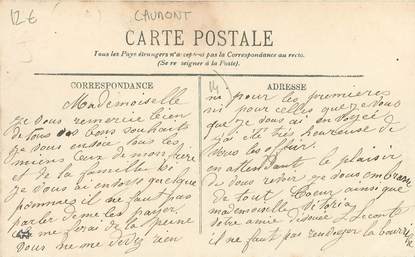 12€
CAUMONT
CARTE POSTALE
Tous les Pays étrangers n'acceptent pas la Correspondance au recto.
(Se renseigner à la Poste).
CORRESPONDANCE
Mademoiselle
je vous remercie bien
de tous vos bons souhaits
je vous envoie tous les
miens ceux de mon
et de la famille
je vous ai envoyé quelque
pommes il ne faut pas
parler de me les payer
me ferai de la peine
vous ne me devez rien
ADRESSE
ni pour les premières
ni pour celles que je vous
que je vous ai envoyé
j'ai été très heureuse de
vous les offrir.
en attendant le plaisir
de vous revoir je vous embrasse
de tout Coeur ainsi que
mademoiselle
votre amie L Leconte
il ne faut pas la